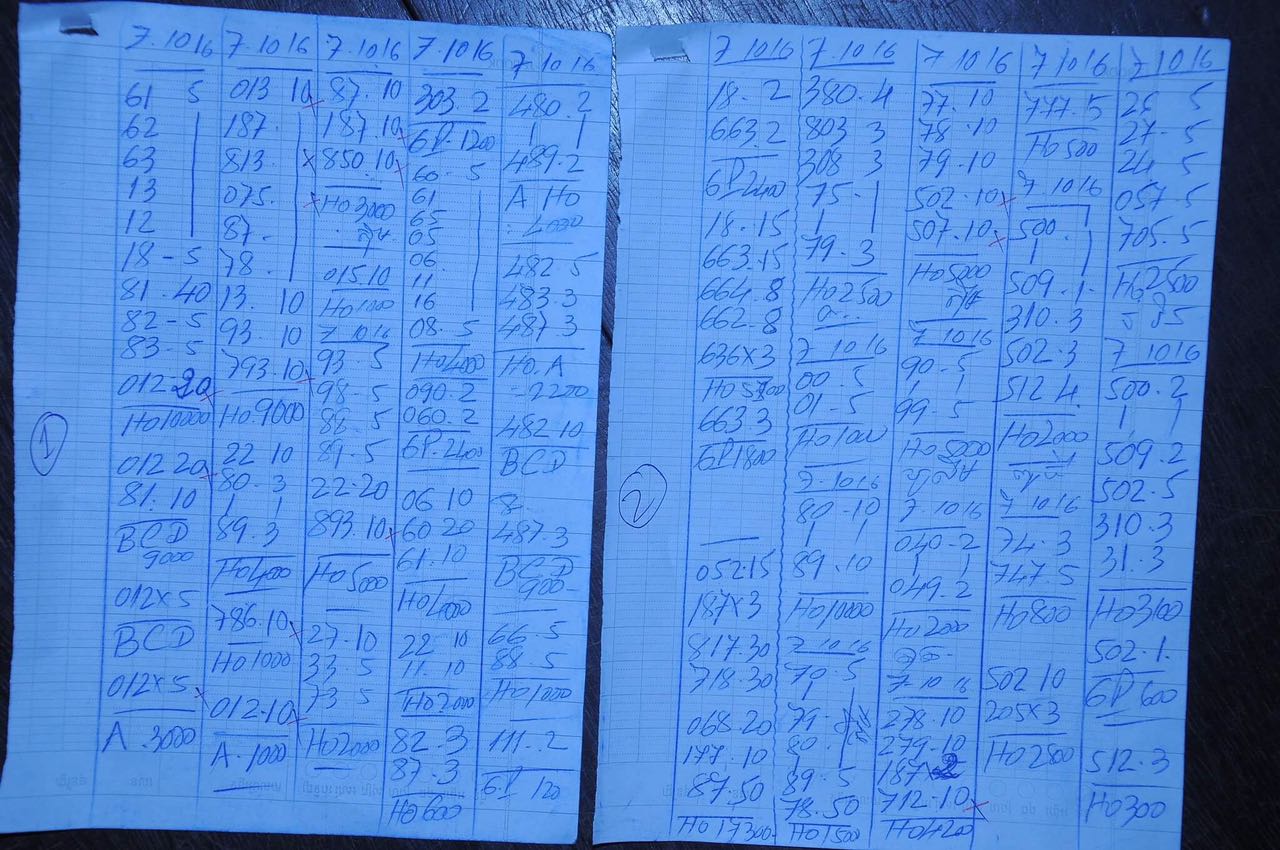 7.10 16
61 5
62
63
13
12
18-5
81.40
82-5
83-5
012.20
Ho10000
012 20
81.10
BCD
9000
012×5
BCD
012×5
A.3000
①
7.10 16
013 10
187.
813.
075.
87.
78.
13. 10
93. 10
793.10
Ho.9000
22 10
80.3
| |
89.3
Ho4000
786.10
Ho1000
012.10
A.1000
7.10 16
87.10
187.10
850.10
Ho3000
015.10
Ho1000
7 10 16
93 5
98.5
88.5
89.5
22.20
893.10
Ho5000
27.10
33.5
73 5
Ho2000
7.10 16
303.2
6P.1200
60.5
61
65
05
06.
11
16
08.5
Ho4000
090.2
060.2
6P.2400
06 10
60 20
61.10
Ho4000
22 10
11.10
Ho2000
82.3
87.3
Ho600
7 10 16
480.2
| |
489.2
A Ho
4000
482.5
483.3
487 3
Ho.A
2200
482 10
BCD
487.3
BCD
900-
66.5
88.5
Ho1000
111.2
6P 120
②
7 10 16
18.2
663.2
6P2400
18.15
663.15
664.8
662.8
636×3
663.3
6P1800
052.15
187×3
817.30
718.30
068.20
177.10
87.50
Ho17300-
7.10 16
380.4
803 3
308 3
75-1
| |
79.3
Ho2500
7 10 16
00.5
01-5
Ho1000
7.10 16
80-10
| |
89.10
Ho10000
7 10 16
70.5
| |
79.
80.
|
89.5
78.50
Ho1500
7 10 16
77.10
78.10
79.10
502.10
507.10
Ho5000
7 10 16
90-5
| |
99-5
Ho5000
7 10 16
040-2
| |
049.2
Ho2000
7 10 16
278.10
279.10
712.10
Ho4200
7 10 16
777.5
Ho500
7 10 16
500.1
| |
509.1.
310.3
502.3
512 4
Ho2000
7 10 16
74.3
747.5
Ho800
502 10
205×3
Ho2800
7 10 16
26 5
27-5
24 5
057.5
705.5
Ho2500
7 10 16
500.2
| |
509.2
502.5
310.3
31.3
Ho3100
502.1.
6P600
512.3
Ho300